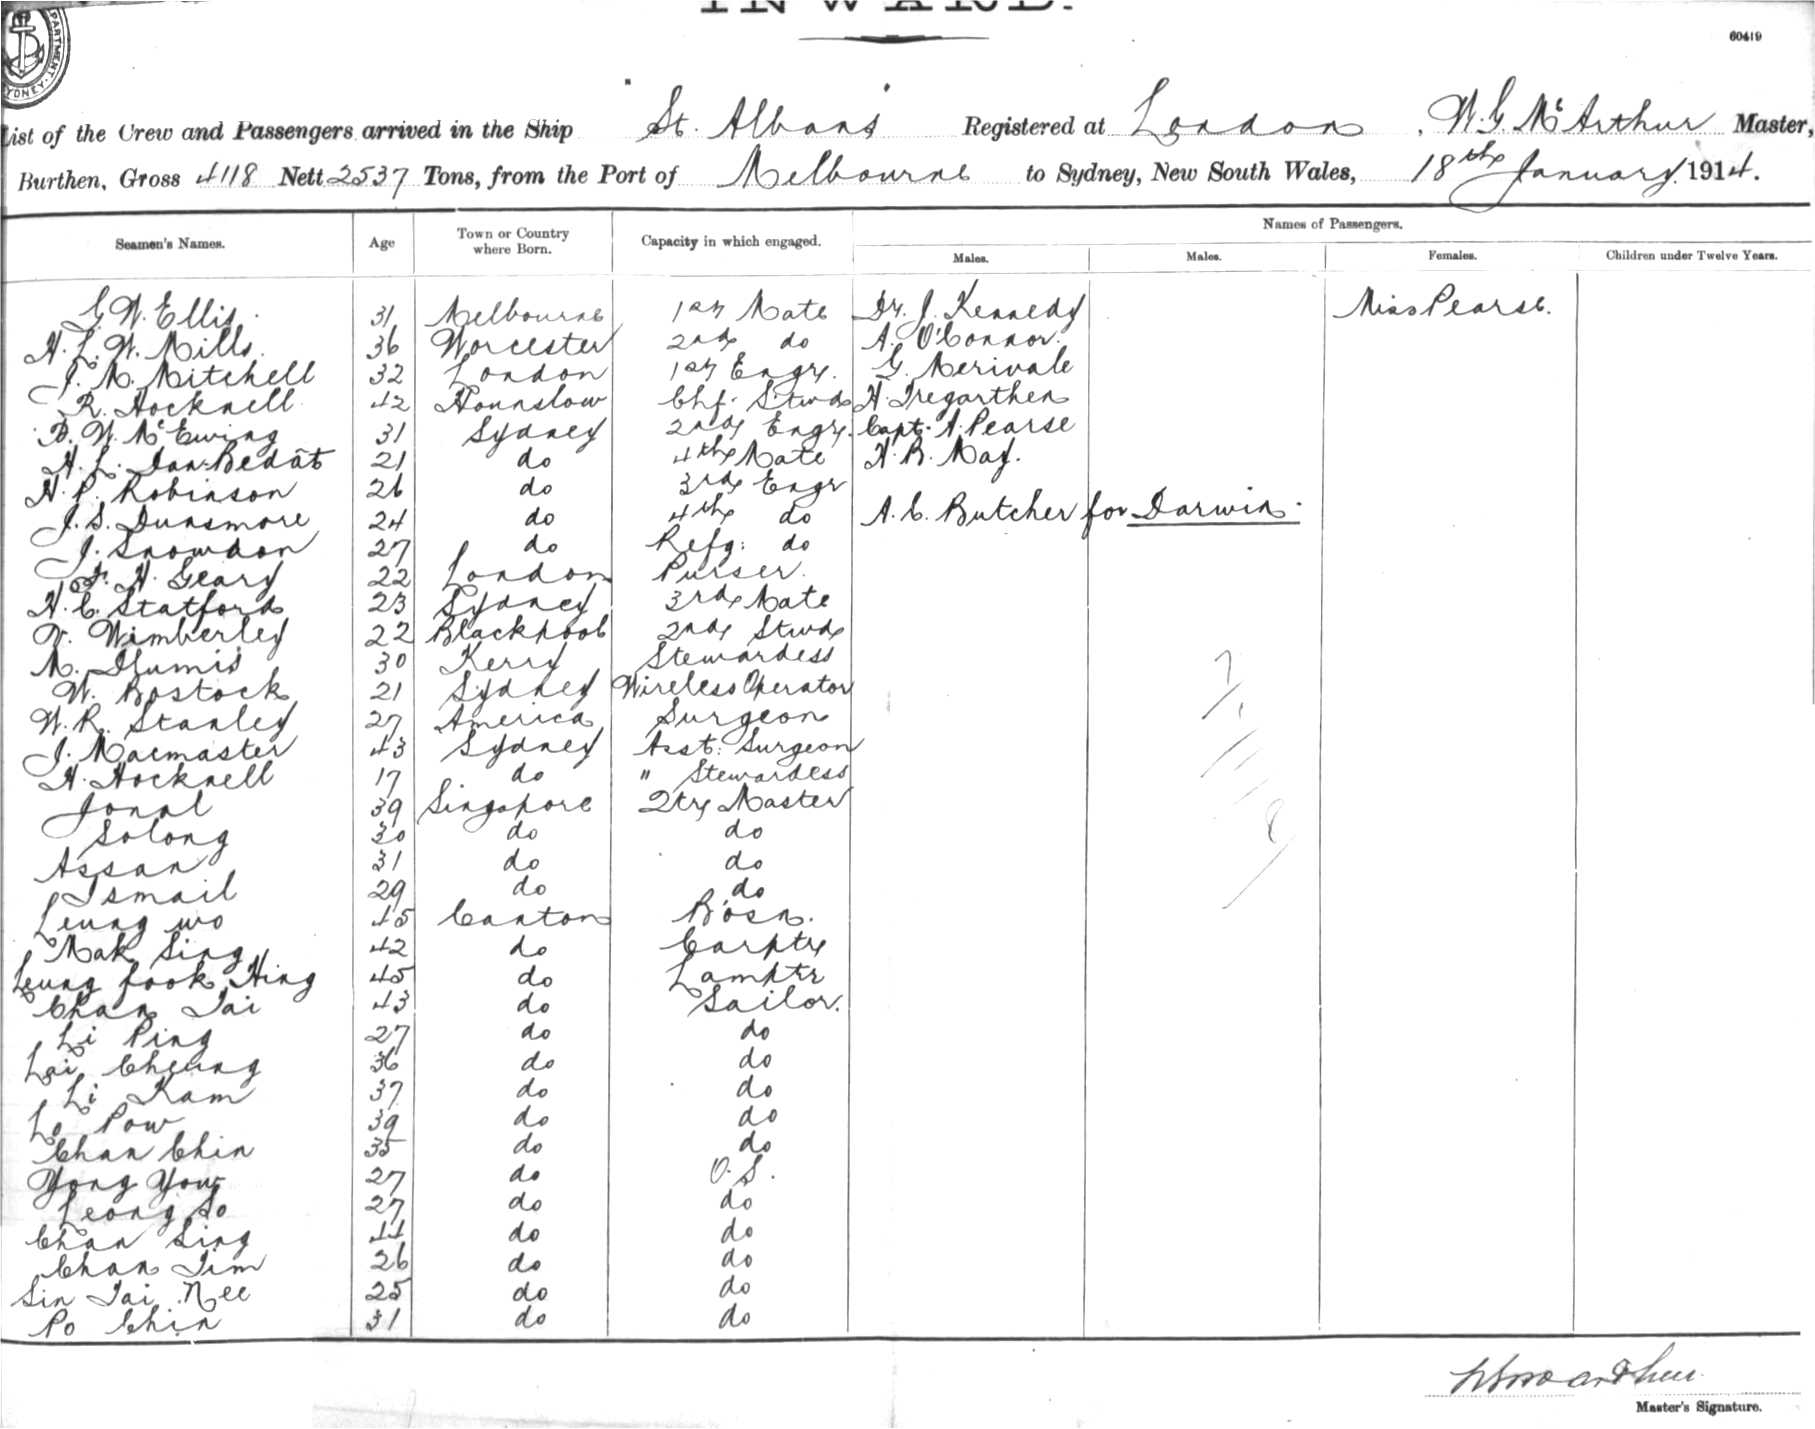 INWARD.
60419
List of the Crew and Passengers arrived in the Ship "St. Albans" Registered at London, W. G. McArthur Master,
Burthen, Gross 4118 Nett 2537 Tons, from the Port of Melbourne to Sydney, New South Wales, 18th January 1914.
Names of Passengers.
Seamen's Names. Age Town or Country where Born. Capacity in which engaged. Males. Males. Females. Children under Twelve Years.
G. W. Ellis. 31 Melbourne 1st Mate Dr. J. Kennedy Miss Pearse.
H. L. W. Mills. 36 Worcester 2nd do A. O'Connor.
J. M. Mitchell 32 London 1st Engr. G. Merivale
R. Hocknell 42 Hounslow Chf. Stwd H. Tregarthen
B. W. McEwing 31 Sydney 2nd Engr. Capt. A. Pearse
H. L. 21 do 4th Mate H. B. May.
H. P. Robinson 26 do 3rd Engr
J. S. Dunsmore 24 do 4th do A. C. Butcher for Darwin.
J. Snowdon 27 do Refg: do
F. H. Geary 22 London Purser.
H. C. Statford 23 Sydney 3rd Mate
V. Wimberley 22 Blackpool 2nd Stwd
M. 30 Kerry Stewardess
W. Bostock 21 Sydney Wireless Operator
W. R. Stanley 27 America Surgeon
J. Macmaster 43 Sydney Asst: Surgeon
H. Hocknell 17 do " Stewardess
Jonal 39 Singapore Qtr Master
Solong 30 do do
Assan 31 do do
Ismail 29 do do
Leung wo 45 Canton Bosn.
Mak Sing 42 do Carptr
Leung fook Hing 45 do Lamptr
Chan Tai 43 do Sailor.
Li Ping 27 do do
Lai Cheung 36 do do
Li Kam 37 do do
Lo Pow 39 do do
Chan Chin 35 do do
Yong You 27 do O. S.
Leong So 27 do do
Chan Sing 44 do do
Chan Tim 26 do do
Sin Tai Nee 25 do do
Po Chin 31 do do
Master's Signature.